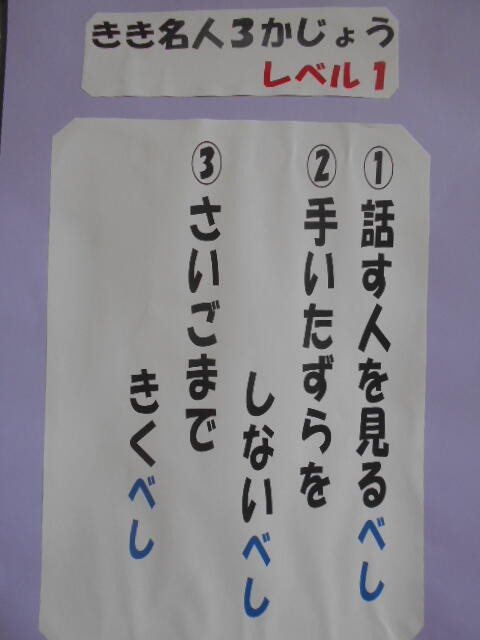 きき名人3かじょう
レベル1
①話す人を見るべし
②手いたずらを
しないべし
③さいごまで
きくべし